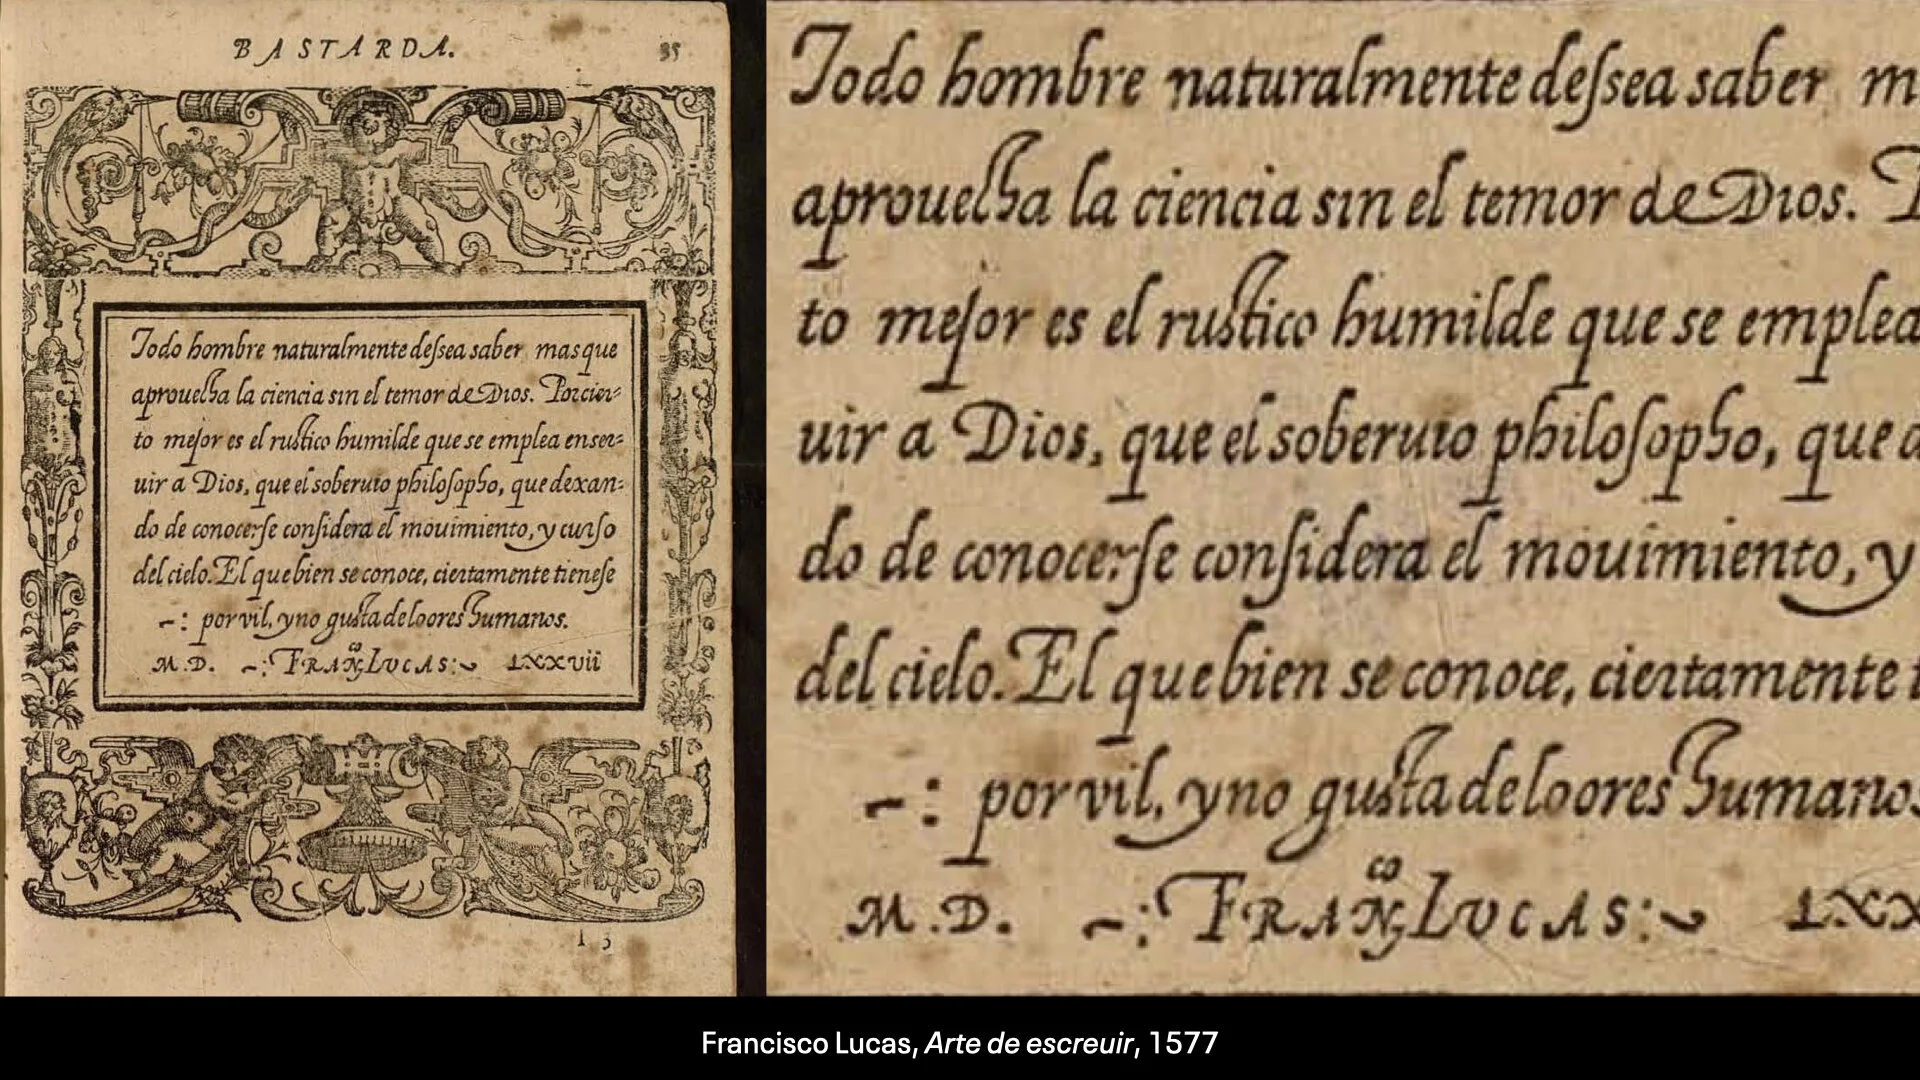 BASTARDA. 35
Todo hombre naturalmente deſsea saber mas que
aprouecha la ciencia sin el temor de Dios. Porcier-
to mejor es el rustico humilde que se emplea en ser-
uir a Dios, que el soberuio philoſopho, que dexan-
do de conocerſe conſidera el mouimiento, y curſo
del cielo. El que bien se conoce, ciertamente tieneſe
~: por vil, y no gusta de loores humanos.
M.D. ~: FRAN,co LVCAS:~ LXXvii
I 3
Todo hombre naturalmente deſsea saber m
aprouecha la ciencia sin el temor de Dios. P
to mejor es el rustico humilde que se emplea
uir a Dios, que el soberuio philoſopho, que d
do de conocerſe conſidera el mouimiento, y
del cielo. El que bien se conoce, ciertamente t
~: por vil, y no gusta de loores humanos
M.D. ~: FRAN,co LVCAS:~ LXX
Francisco Lucas, Arte de escreuir, 1577